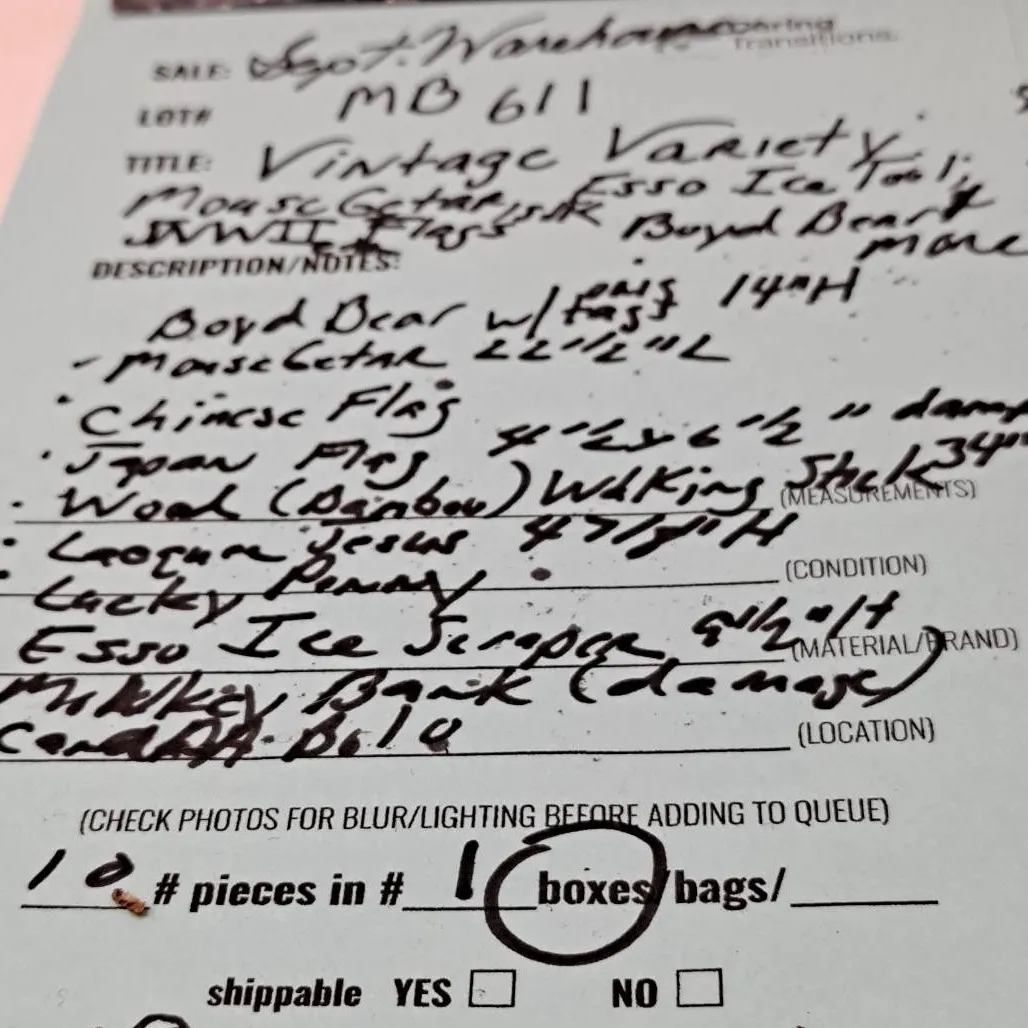 Caring
Transitions.
SALE: Sgot. Wareham
LOT# MB 611
TITLE: Vintage Variety
Mouse Getar Esso Ice Tool,
WWII Flags Boyd Bear &
more
DESCRIPTION/NOTES:
Boyd Bear w/ orig tags 14"H
- Mouse Getar 22"1/2"L
• Chinese Flag
• Japan Flag 4"1/2 x 6"1/2" dam
• Wood (Bamboo) Walking Stick 34"
(MEASUREMENTS)
• Jesus 47 1/8"H
(CONDITION)
• Lucky Penny
Esso Ice Scraper 8 1/2"
(MATERIAL/BRAND)
Bank (damage)
(LOCATION)
(CHECK PHOTOS FOR BLUR/LIGHTING BEFORE ADDING TO QUEUE)
10 # pieces in # 1 boxes/bags/
shippable YES NO